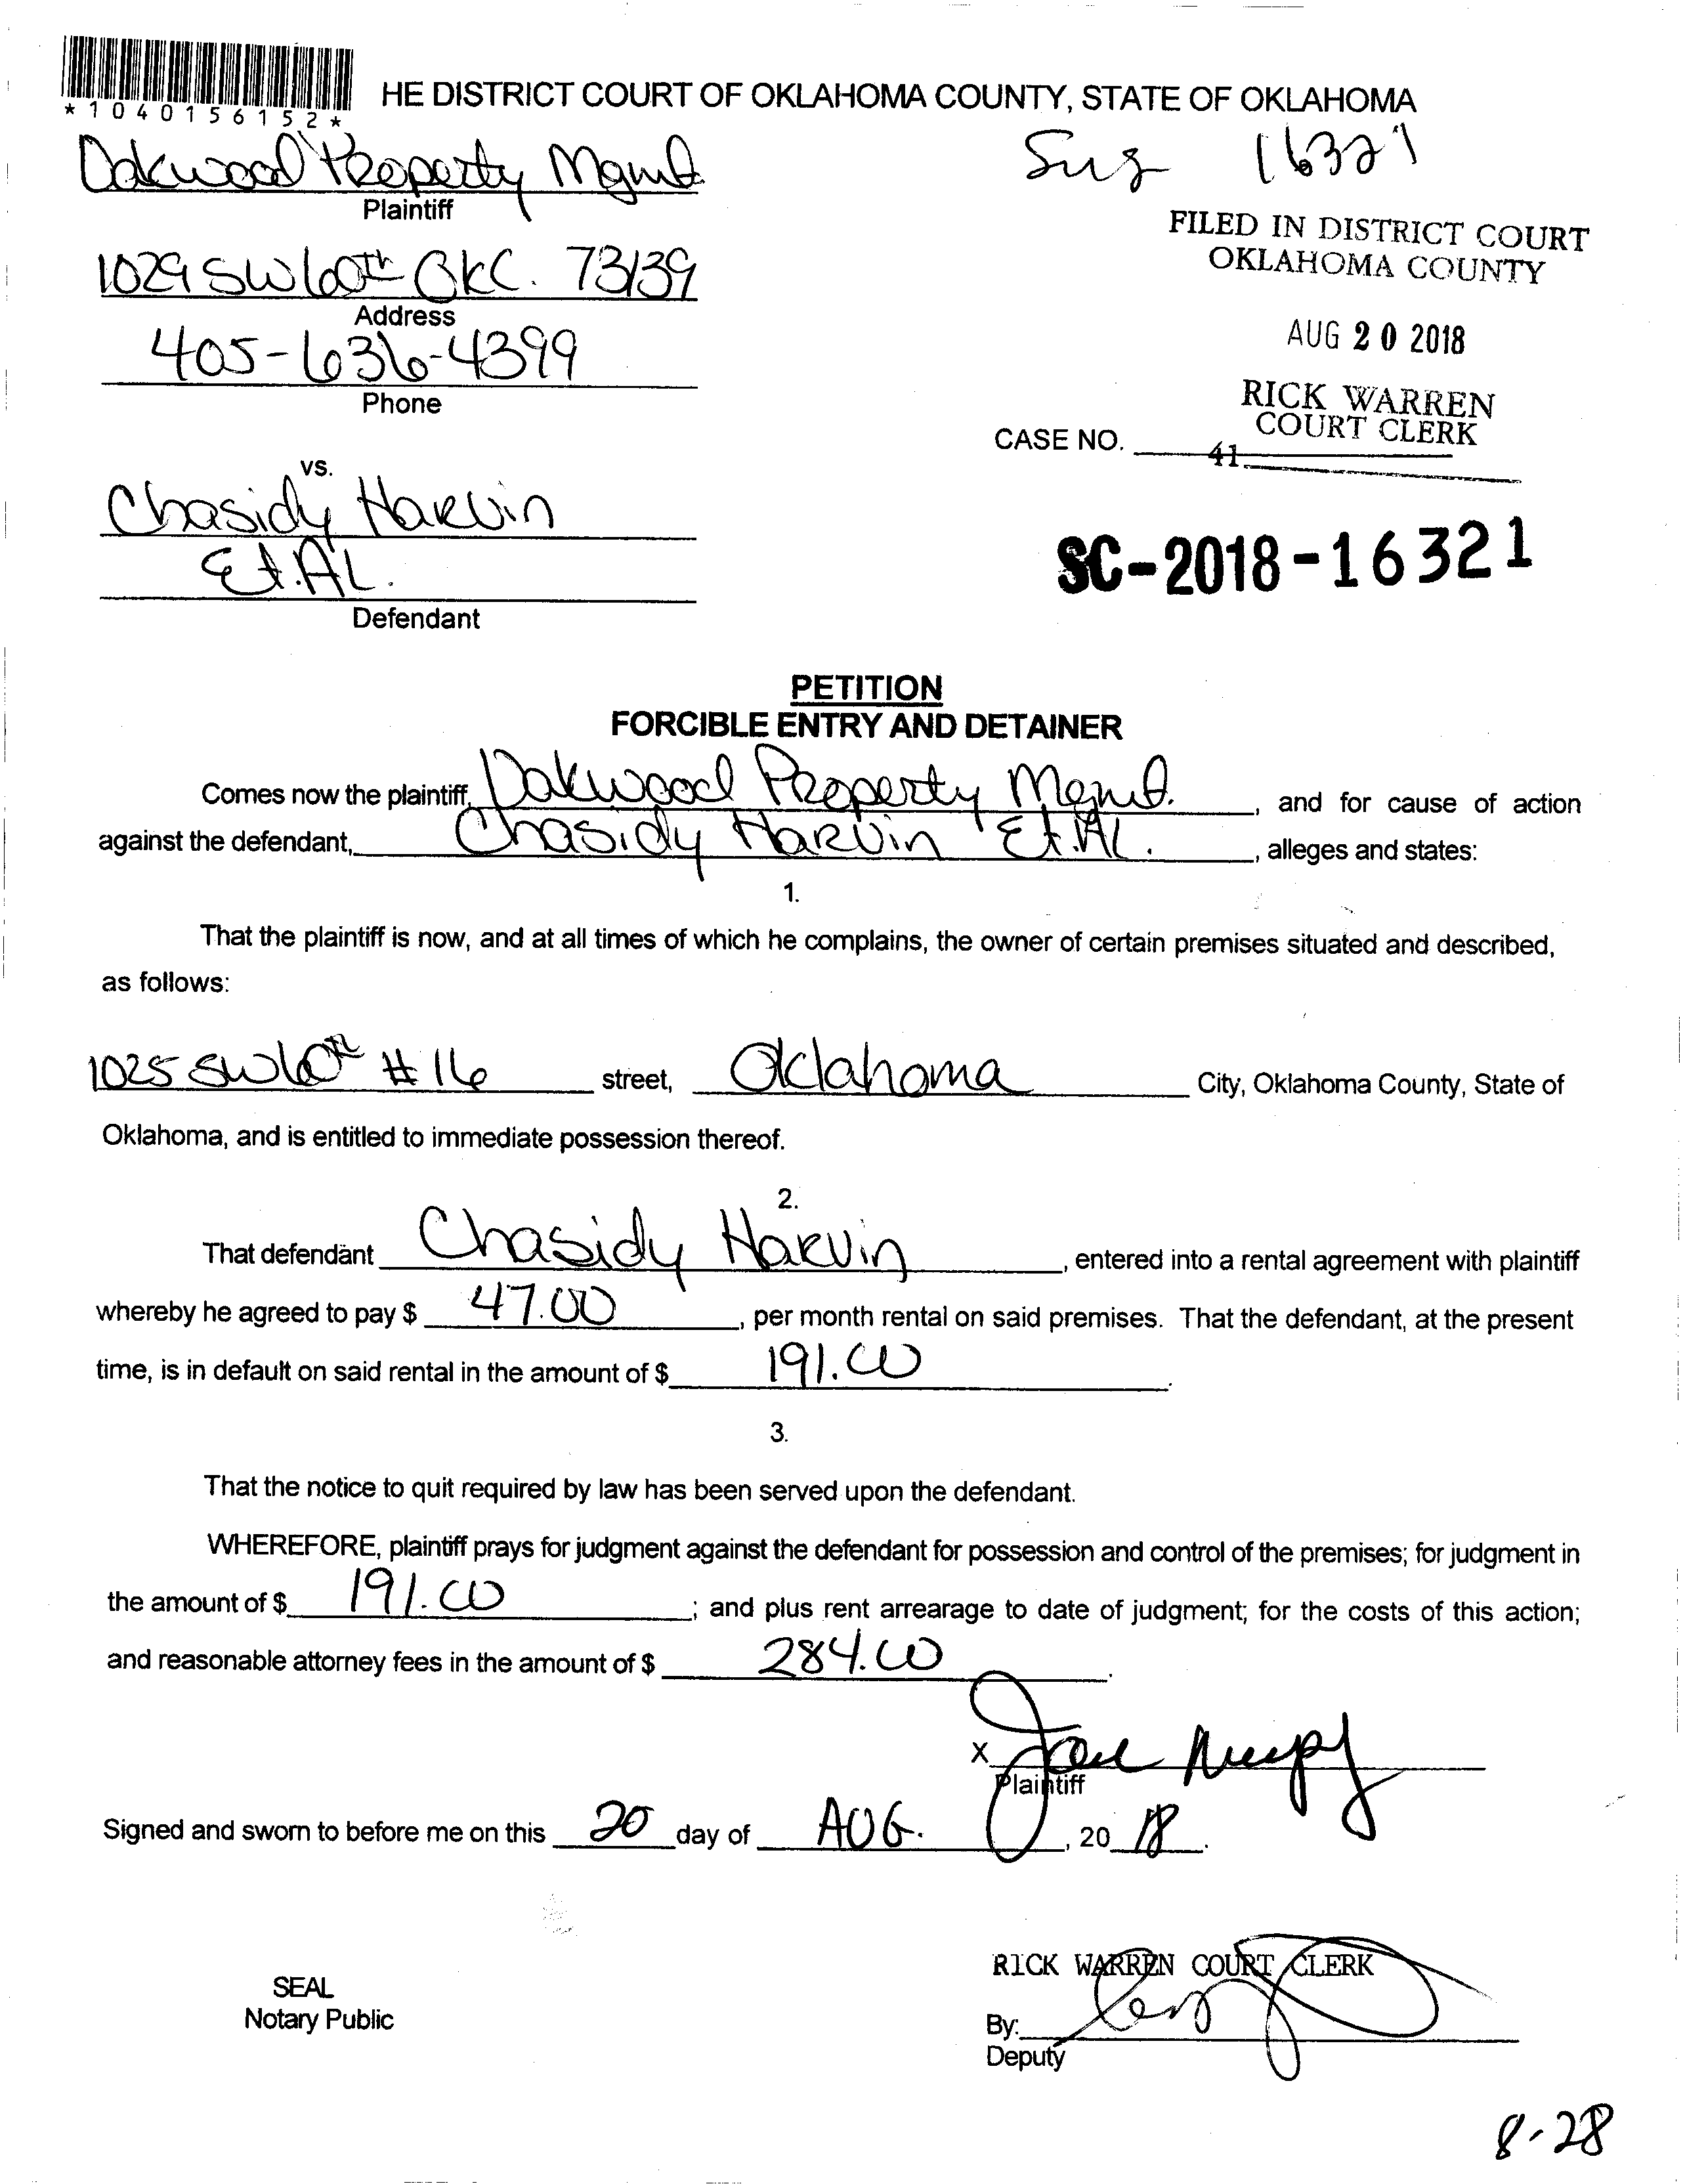 *1040156152*
HE DISTRICT COURT OF OKLAHOMA COUNTY, STATE OF OKLAHOMA
Oakwood Property Mgmt
16321
Plaintiff
FILED IN DISTRICT COURT
OKLAHOMA COUNTY
1029 SW 60th OKC. 73139
Address
AUG 20 2018
405-636-4399
Phone
RICK WARREN
COURT CLERK
CASE NO.
41
vs.
Chasidy Harvin
Et.Al.
Defendant
SC-2018-16321
PETITION
FORCIBLE ENTRY AND DETAINER
Comes now the plaintiff, Oakwood Property Mgmt. , and for cause of action
against the defendant, Chasidy Harvin Et.Al. , alleges and states:
1.
That the plaintiff is now, and at all times of which he complains, the owner of certain premises situated and described,
as follows:
1025 SW 60th #16 street, Oklahoma City, Oklahoma County, State of
Oklahoma, and is entitled to immediate possession thereof.
2.
That defendant Chasidy Harvin , entered into a rental agreement with plaintiff
whereby he agreed to pay $ 47.00 , per month rental on said premises. That the defendant, at the present
time, is in default on said rental in the amount of $ 191.00 .
3.
That the notice to quit required by law has been served upon the defendant.
WHEREFORE, plaintiff prays for judgment against the defendant for possession and control of the premises; for judgment in
the amount of $ 191.00 ; and plus rent arrearage to date of judgment; for the costs of this action;
and reasonable attorney fees in the amount of $ 284.00 .
X
Plaintiff
Signed and sworn to before me on this 20 day of AUG. , 20 18 .
RICK WARREN COURT CLERK
SEAL
Notary Public
By:
Deputy
8-28